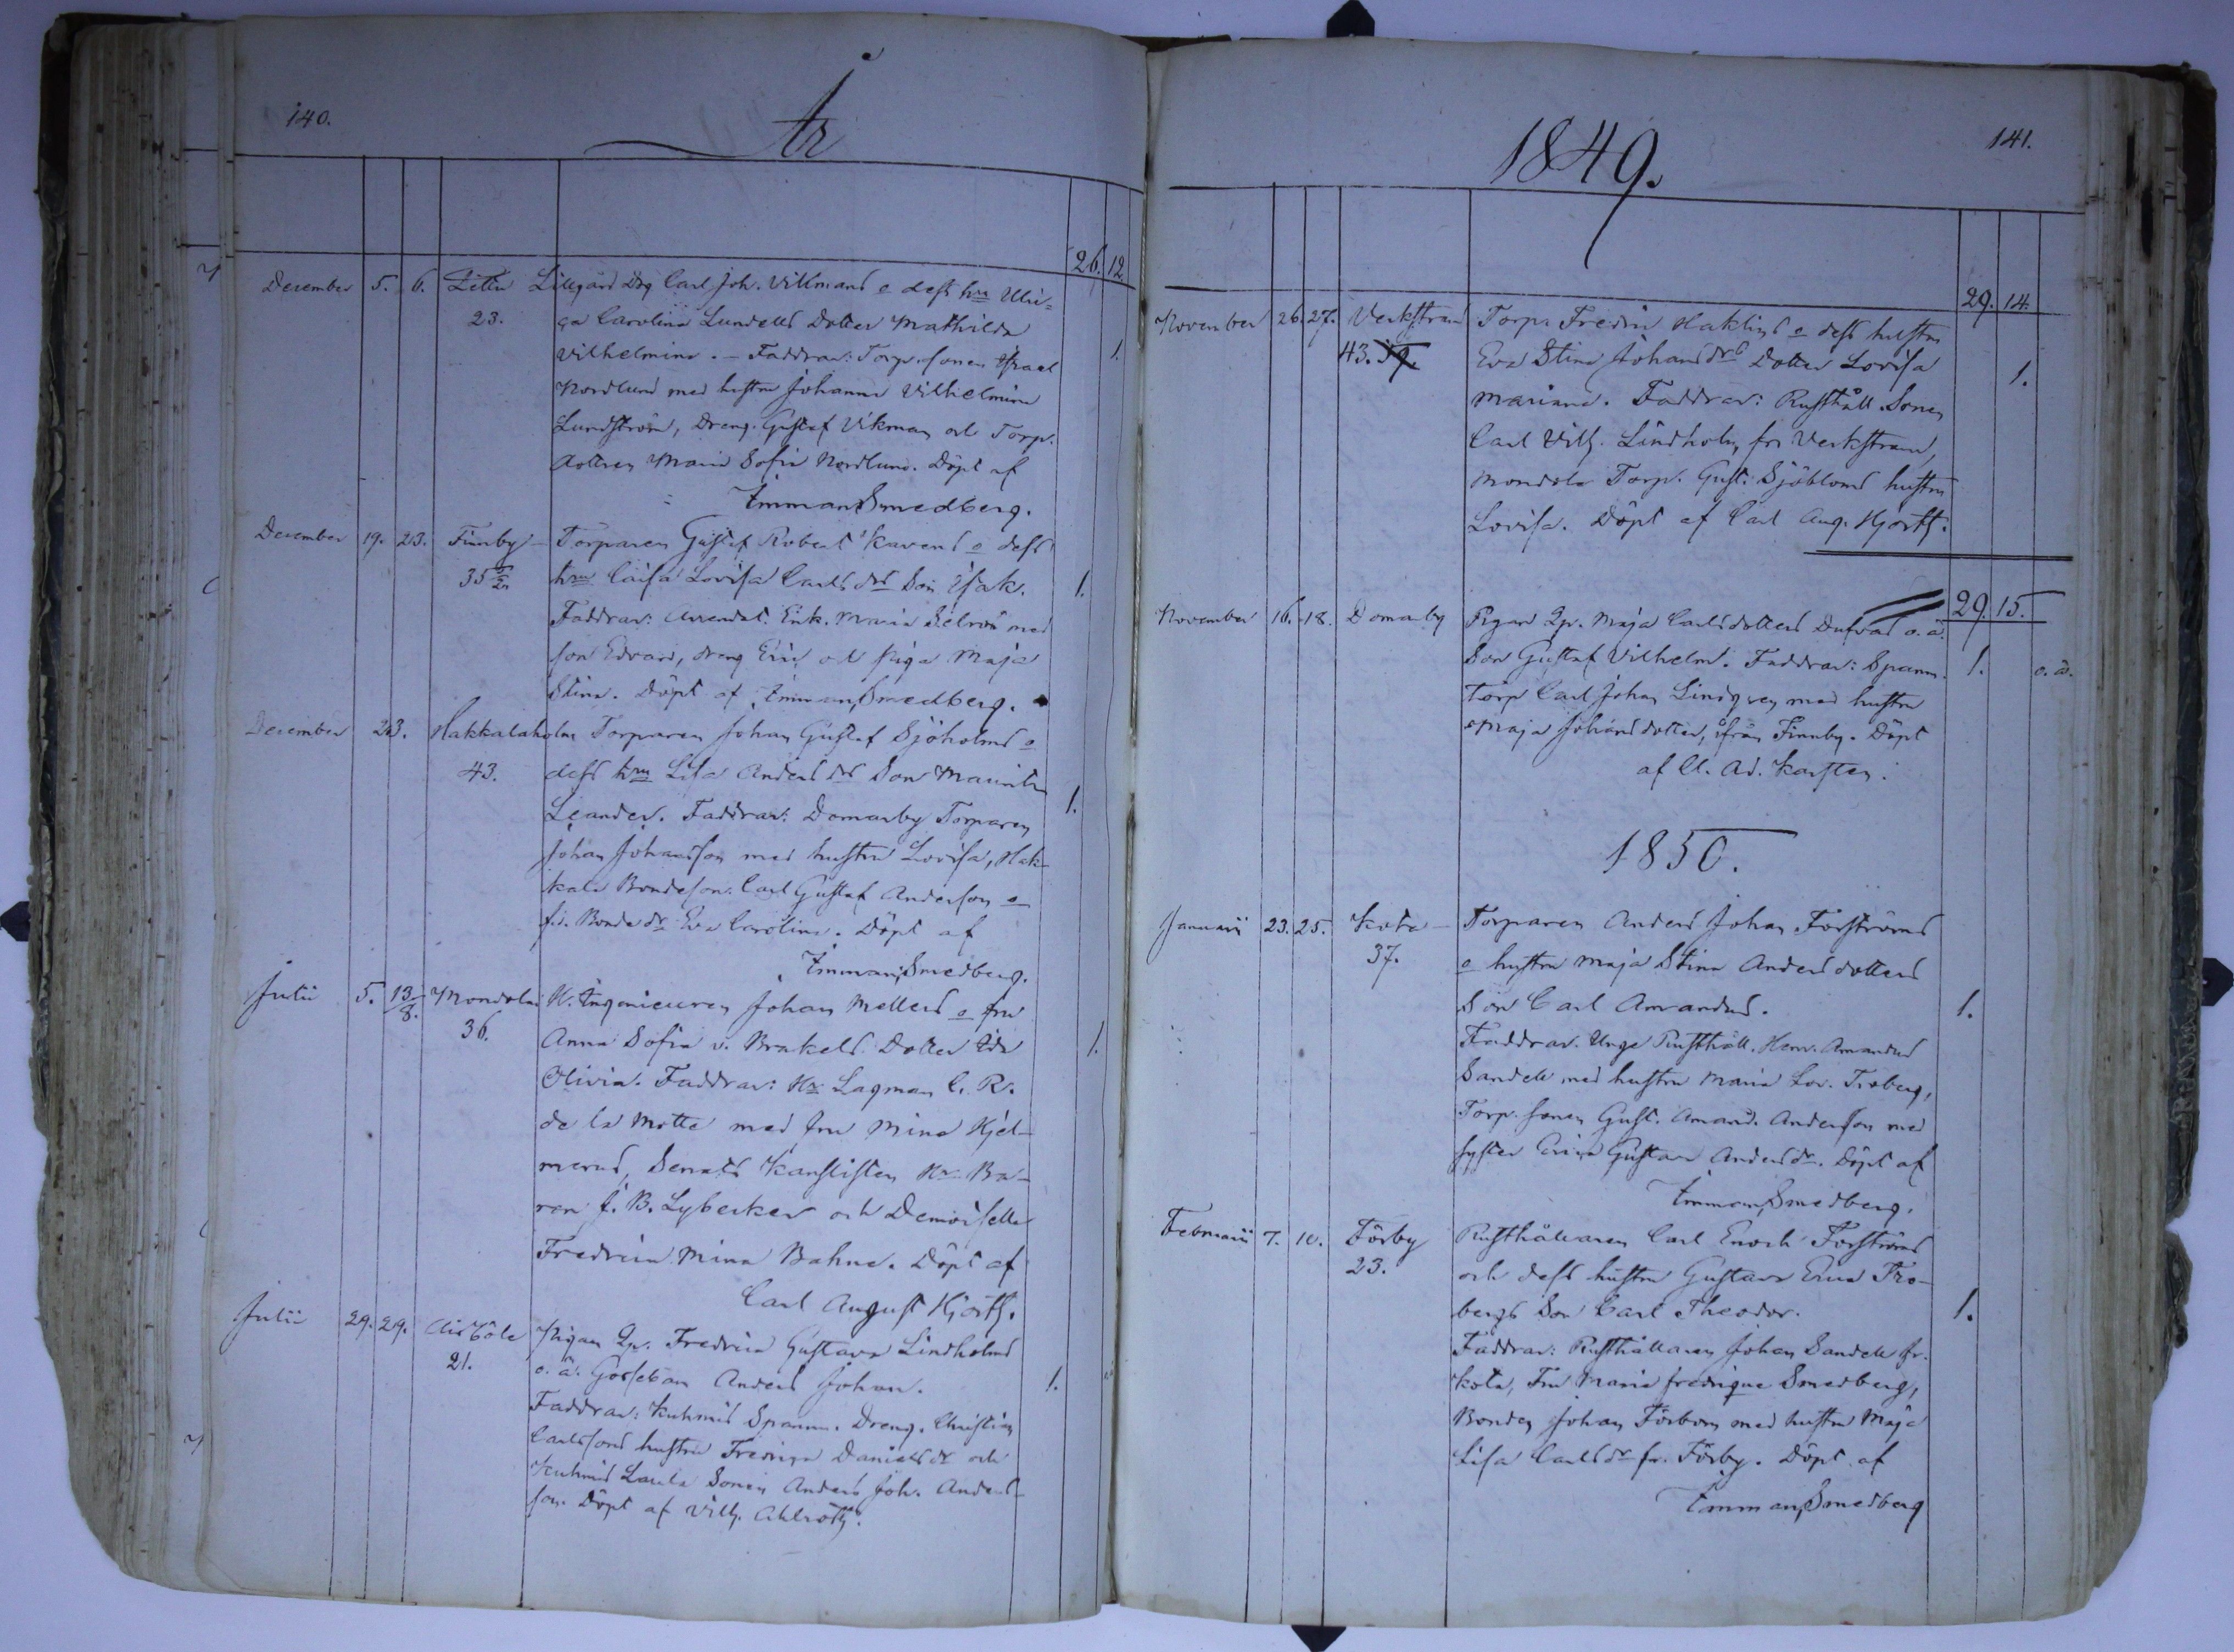 140.
År
26. 12.
December 5. 6. Littu Lillgård Drg Carl Joh. Vikmans o dess hru Ulri-
23. ca Carolina Lundells Dotter Mathilda
Vilhelmina. - Faddrar: Torp. sonen Israel 1.
Nordlund med hustru Johanna Vilhelmina
Lundström, Dreng. Gustaf Vikman och Torp.
dottren Maria Sofia Nordlund. Döpt af
Imman. Smedberg.
December 19. 23. Finnby Torparen Gustaf Robert Kavens o dess
35 hru Caisa Lovisa Carls dr Son Isak. 1.
Faddrar: Arrendat. Enk. Maria med
son Edvard, dreng Eric och Piga Maja
Stina. Döpt af Imman. Smedberg.
December 23. Hakkalaholm Torparen Johan Gustaf Sjöholms o
43. dess hru Lisa Anders dr Son Mauritz
Leander. Faddrar: Domarby Torparen 1.
Johan Johansson med hustru Lovisa, Hak-
kala Bondeson: Carl Gustaf Anderson o
Bonde dr Eva Carolina. Döpt af
Imman. Smedberg.
Julii 5. 13/8. Mondola H. Ingenieuren Johan Mellers o fru
36. Anna Sofia v. Brakels Dotter Ida 1.
Olivia. Faddrar: Hr Lagman C. R.
de la Motte med fru Mina Hjel-
merus, Senats Kanslisten Hr Ba-
ron J. B. Lybecker och Demoiselle
Fredrica Mina Bahne. Döpt af
Carl August Hjorth.
Julii 29. 29. Aisböle Pigan Qv. Fredrica Gustava Lindholms
21. o. ä. Gossebarn Anders Johan. 1.
Faddrar: Kuhmis Spanm. Dreng. Christian
Carlssons hustru Fredriqa Daniels dr och
Kuhmis Laula Sonen Anders Joh. Anders-
son. Döpt af Vilh. Ahlroth.
1849.
141.
29. 14.
November 26. 27. Verkstrand Torp. Fredric Haklins o dess hustru
43. Eva Stina Johans drs Dotter Lovisa 1.
Mariana. Faddrar: Rusthåll. Sonen
Carl Vilh. Lindholm, fr. Verkstrand,
Mondola Torp. Gust: Sjöbloms hustru
Lovisa. Döpt af Carl Aug. Hjorth.
29. 15.
November 16. 18. Domarby Pigan Qv. Maja Carlsdotters Dufvas o. ä.
Son Gustaf Vilhelm. Faddrar: Spanm. 1. o. ä.
Torp Carl Johan Lindqren med hustru
Maja Johansdotter, ifrån Finnby. Döpt
af Cl. Ad. Karsten.
1850.
Januarii 23. 25. Kota Torparen Anders Johan Forströms
37. o hustru Maja Stina Andersdotters
Son Carl Amandus. 1.
Faddrar. Unge Rusthåll. Herr. Amandus
Sandell med hustru Maria Lov. Troberg,
Torp. sonen Gust. Amand. Anderson med
syster Erica Gustava Anders dr. Döpt af
Imman. Smedberg.
Februarii 7. 10. Förby Rusthållaren Carl Enoch Forströms
23. och dess hustru Gustava Erica Tro-
bergs Son Carl Theodor. 1.
Faddrar: Rusthållaren Johan Sandell fr.
Kota, Fru Maria Fredrique Smedberg,
Bonden Johan Förbom med hustru Maja
Lisa Carls dr fr. Förby. Döpt af
Imman. Smedberg